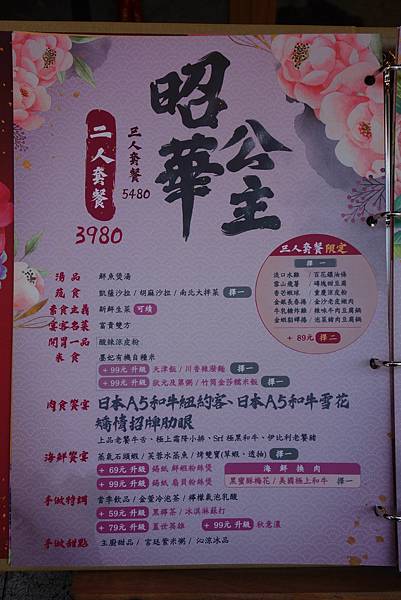 昭華公主
二人套餐
3980
三人套餐
5480
三人套餐限定
擇一
淡口水雞 / 百花鑲油條
雲山飛薯 / 磚塊甜豆腐
香芒蝦球 / 重慶涼皮粉
金銀長春捲 / 金沙老皮嫩肉
+ 89元 擇二
湯品 鮮魚煲湯
蔬食 凱薩沙拉 / 胡麻沙拉 / 南北大拌菜 擇一
素食主義 新鮮生菜 可續
宴客名菜 富貴雙方
開胃一品 酸辣涼皮粉
米食 墨妃有機自種米
+ 99元 升級 天津飯 / 川香辣潑麵 擇一
+ 99元 升級 狀元及第粥 / 竹筒金莎糯米飯 擇一
肉食饗宴 日本A5和牛紐約客、日本A5和牛雪花
矯情招牌肋眼
上品老饕牛舌、極上霜降小排、Srf 極黑和牛、伊比利老饕豬
海鮮饗宴 蒸氣石頭蝦 / 芙蓉水蒸魚 / 烤雙寶(草蝦、透抽) 擇一
+ 69元 升級 錫紙 鮮蝦粉絲煲
+ 99元 升級 錫紙 扇貝粉絲煲
海鮮換肉
黑蜜豚梅花 / 美國極上和牛 擇一
手做特調 當季飲品 / 金萱冷泡茶 / 檸檬氣泡乳酸
+ 59元 升級 黑檸茶 / 冰淇淋蘇打
+ 79元 升級 蓋世英雄 + 99元 升級 秋意濃
手做甜點 主廚甜品 / 宮廷紫米粥 / 沁涼冰品